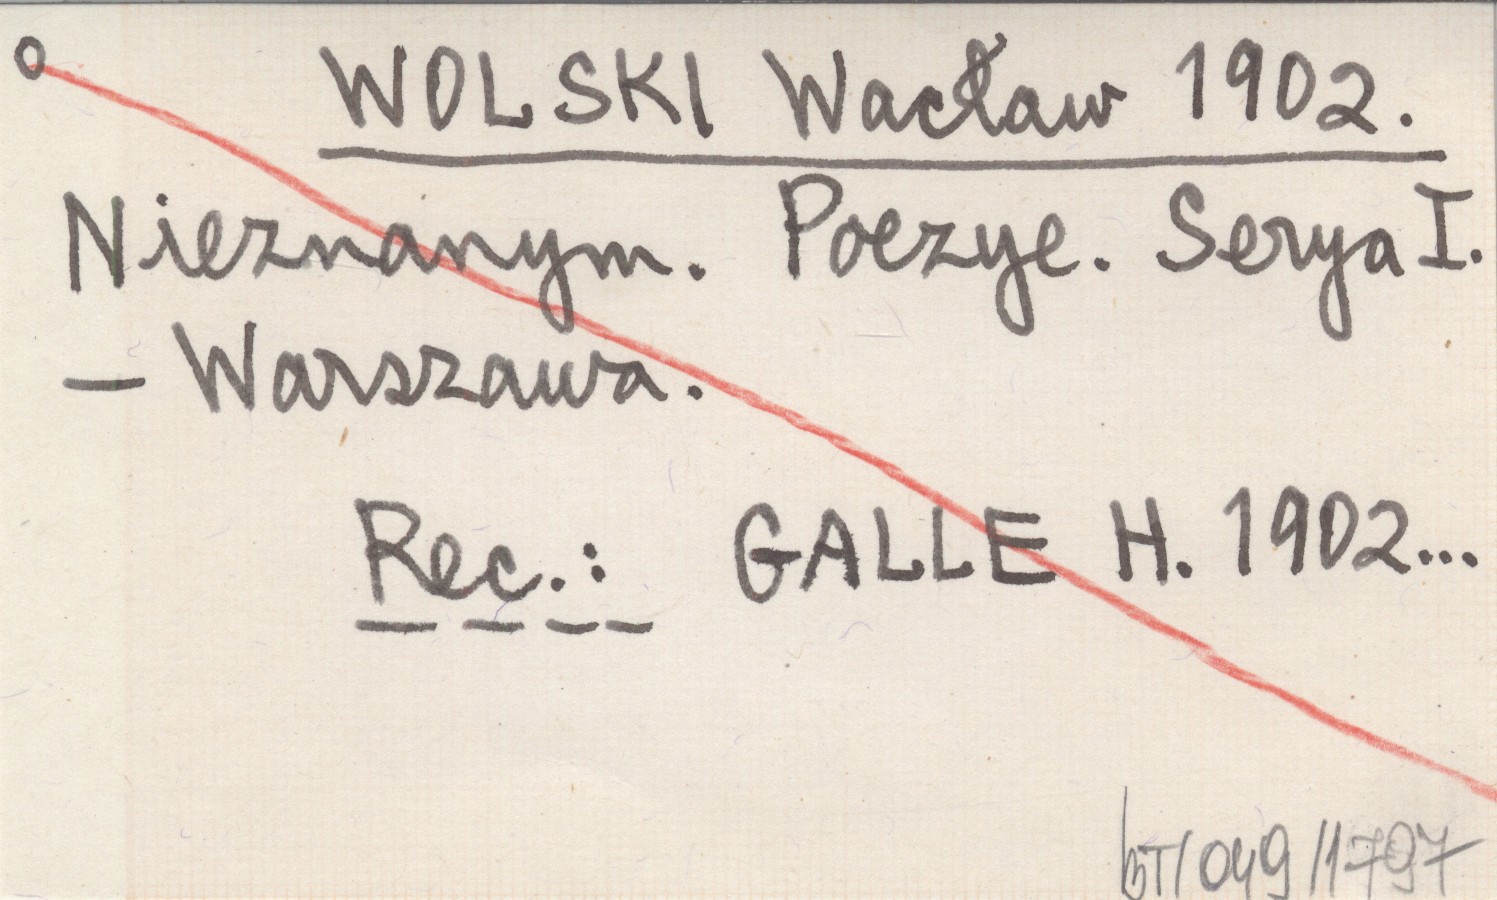 o WOLSKI Wacław 1902.
Nieznanym. Poezye. Serya I.
— Warszawa.
Rec.: GALLE H. 1902...
BT/049/1797